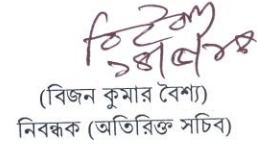 (বিজন কুমার বৈশ্য)
নিবন্ধক (অতিরিক্ত সচিব)